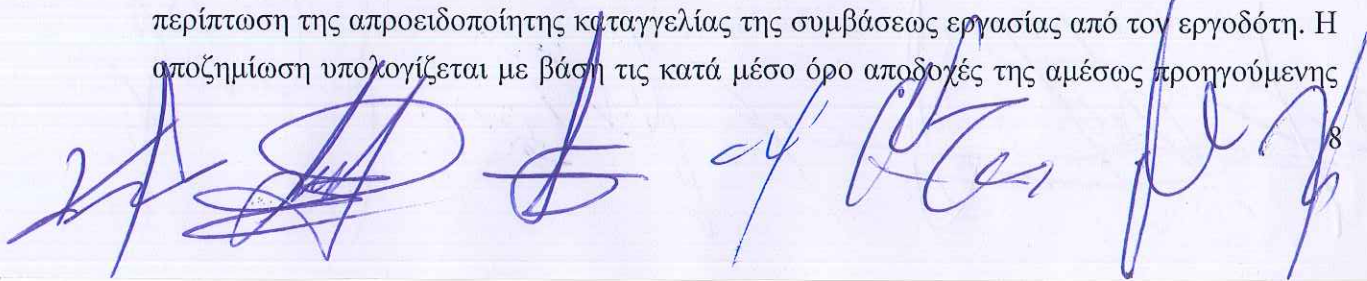 περίπτωση της απροειδοποίητης καταγγελίας της συμβάσεως εργασίας από τον εργοδότη. Η
αποζημίωση υπολογίζεται με βάση τις κατά μέσο όρο αποδοχές της αμέσως προηγούμενης
8